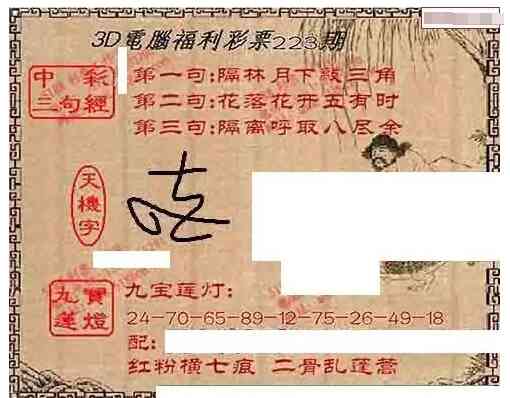 3D電腦福利彩票223期
中彩三句經
第一句:隔林月下敲三角
第二句:花落花开五有时
第三句:隔窗呼取八尽余
天機字
九寶蓮燈
九宝莲灯:
24-70-65-89-12-75-26-49-18
配:
红粉横七痕 二骨乱蓬蒿